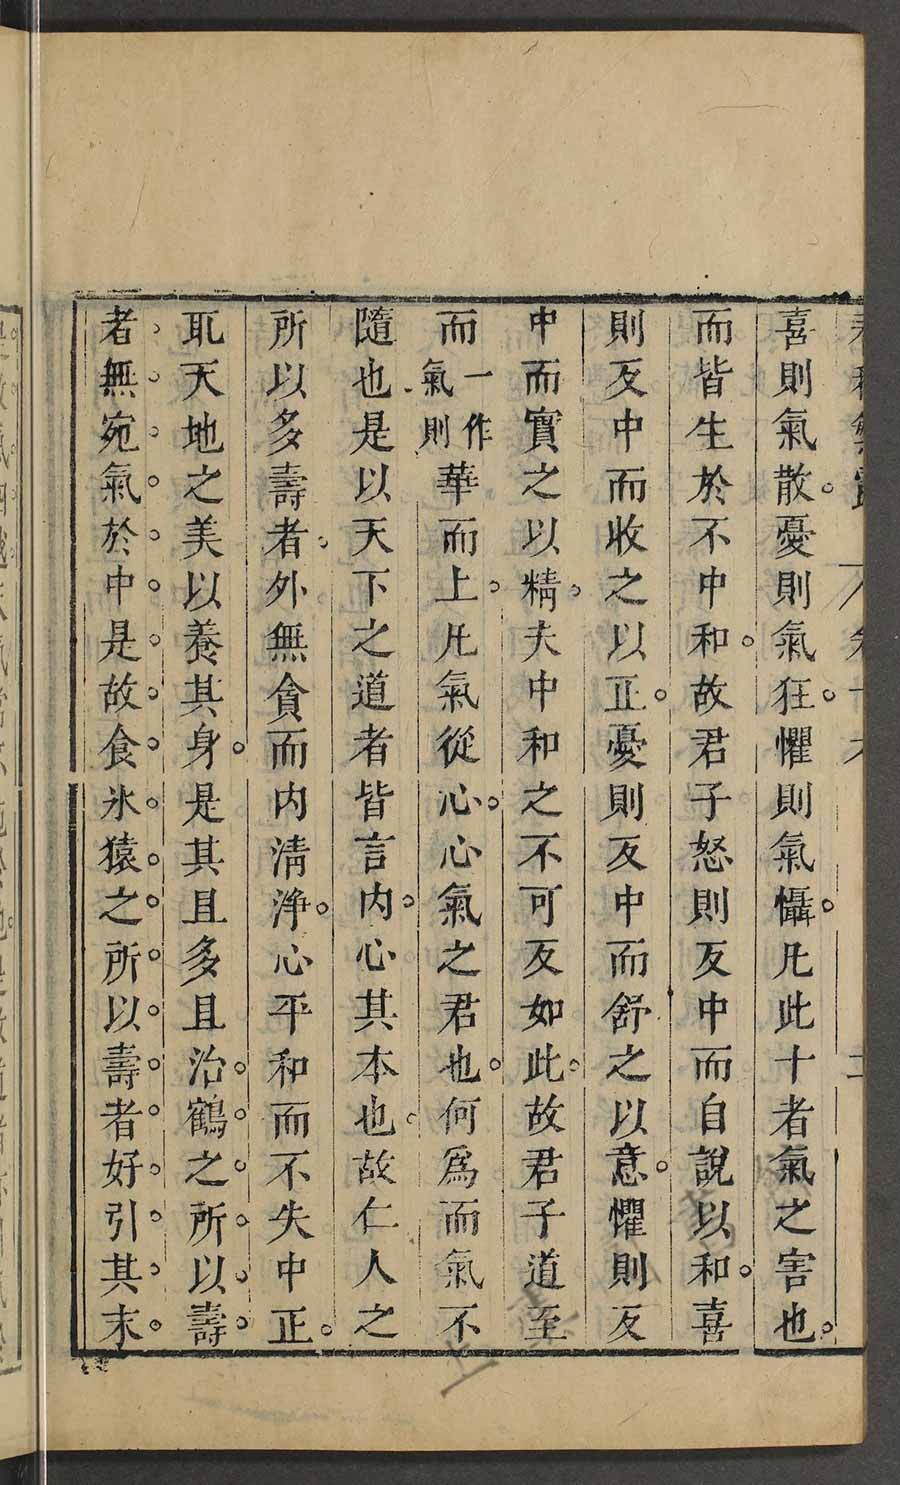 喜則氣散。憂則氣狂。懼則氣懾。凡此十者氣之害也。
而皆生於不中和。故君子怒則反中而自說以和。喜
則反中而收之以正。憂則反中而舒之以意。懼則反
中而實之以精。夫中和之不可反如此。故君子道至
而一作氣則華而上。凡氣從心。心氣之君也。何爲而氣不
隨也是以天下之道者皆言内。心其本也。故仁人之
所以多壽者。外無貪而内清淨。心平和而不失中正。
取天地之美以養其身。是其且多且治。鶴之所以壽
者無宛氣於中是故食氷猿之所以壽者好引其末